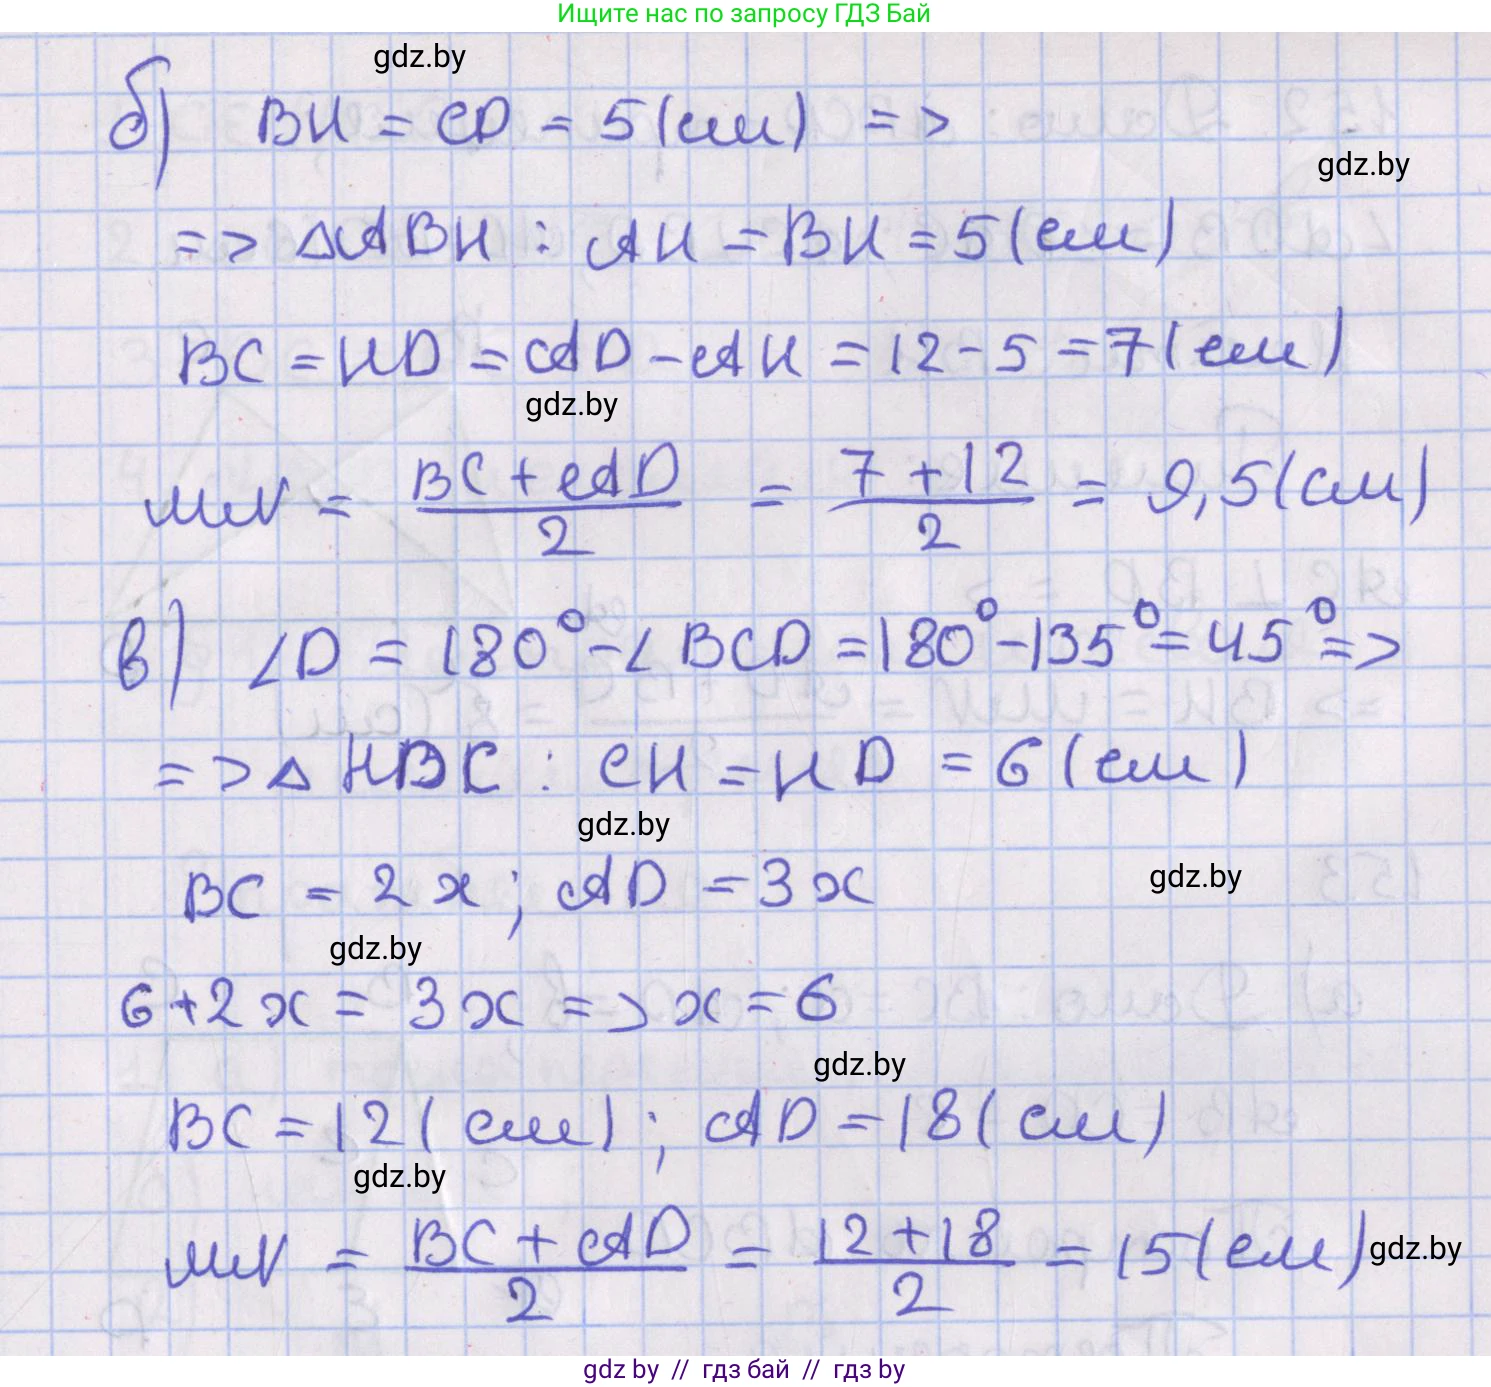 Ищите нас по запросу ГДЗ Бай
gdz.by
б) BH = CD = 5 (см) =>
gdz.by
=> △ABH : AH = BH = 5 (см)
BC = HD = AD - AH = 12 - 5 = 7 (см)
gdz.by
MN = (BC + AD)/2 = (7 + 12)/2 = 9,5 (см)
в) ∠D = 180° - ∠BCD = 180° - 135° = 45° =>
=> △HDC : CH = HD = 6 (см)
gdz.by
gdz.by
BC = 2x ; AD = 3x
gdz.by
6 + 2x = 3x => x = 6
gdz.by
BC = 12 (см) ; AD = 18 (см)
gdz.by
MN = (BC + AD)/2 = (12 + 18)/2 = 15 (см)
gdz.by
gdz by // гдз бай // гдз by